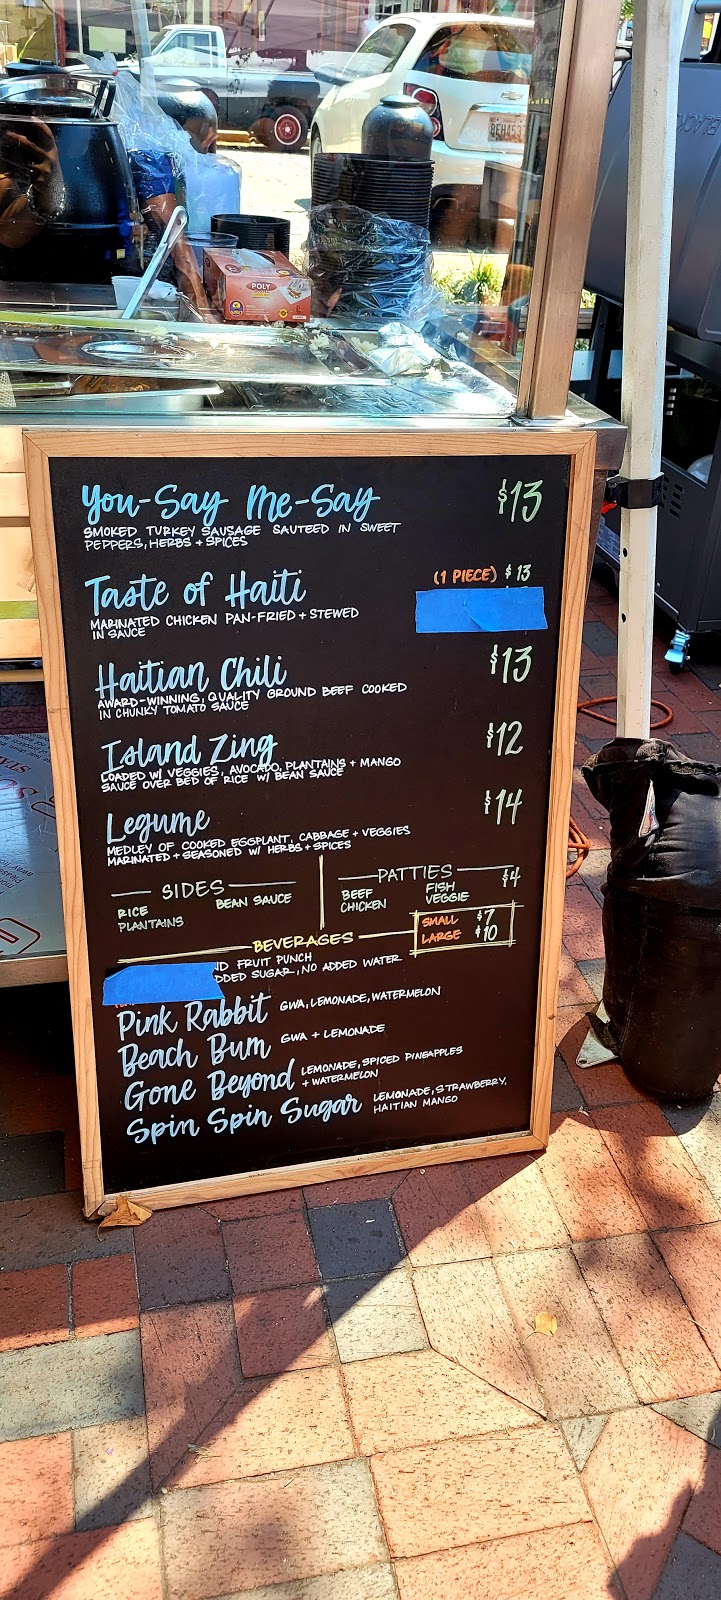 POLY
You-Say Me-Say $13
SMOKED TURKEY SAUSAGE SAUTEED IN SWEET
PEPPERS, HERBS + SPICES
Taste of Haiti (1 PIECE) $13
MARINATED CHICKEN PAN-FRIED + STEWED
IN SAUCE
Haitian Chili $13
AWARD-WINNING, QUALITY GROUND BEEF COOKED
IN CHUNKY TOMATO SAUCE
Island Zing $12
LOADED W/ VEGGIES, AVOCADO, PLANTAINS + MANGO
SAUCE OVER BED OF RICE W/ BEAN SAUCE
Legume $14
MEDLEY OF COOKED EGGPLANT, CABBAGE + VEGGIES
MARINATED + SEASONED W/ HERBS + SPICES
SIDES
RICE BEAN SAUCE
PLANTAINS
PATTIES $4
BEEF FISH
CHICKEN VEGGIE
BEVERAGES
SMALL $7
LARGE $10
FRUIT PUNCH
SUGAR, NO ADDED WATER
Pink Rabbit GWA, LEMONADE, WATERMELON
Beach Bum GWA + LEMONADE
Gone Beyond LEMONADE, SPICED PINEAPPLES
+ WATERMELON
Spin Spin Sugar LEMONADE, STRAWBERRY,
HAITIAN MANGO